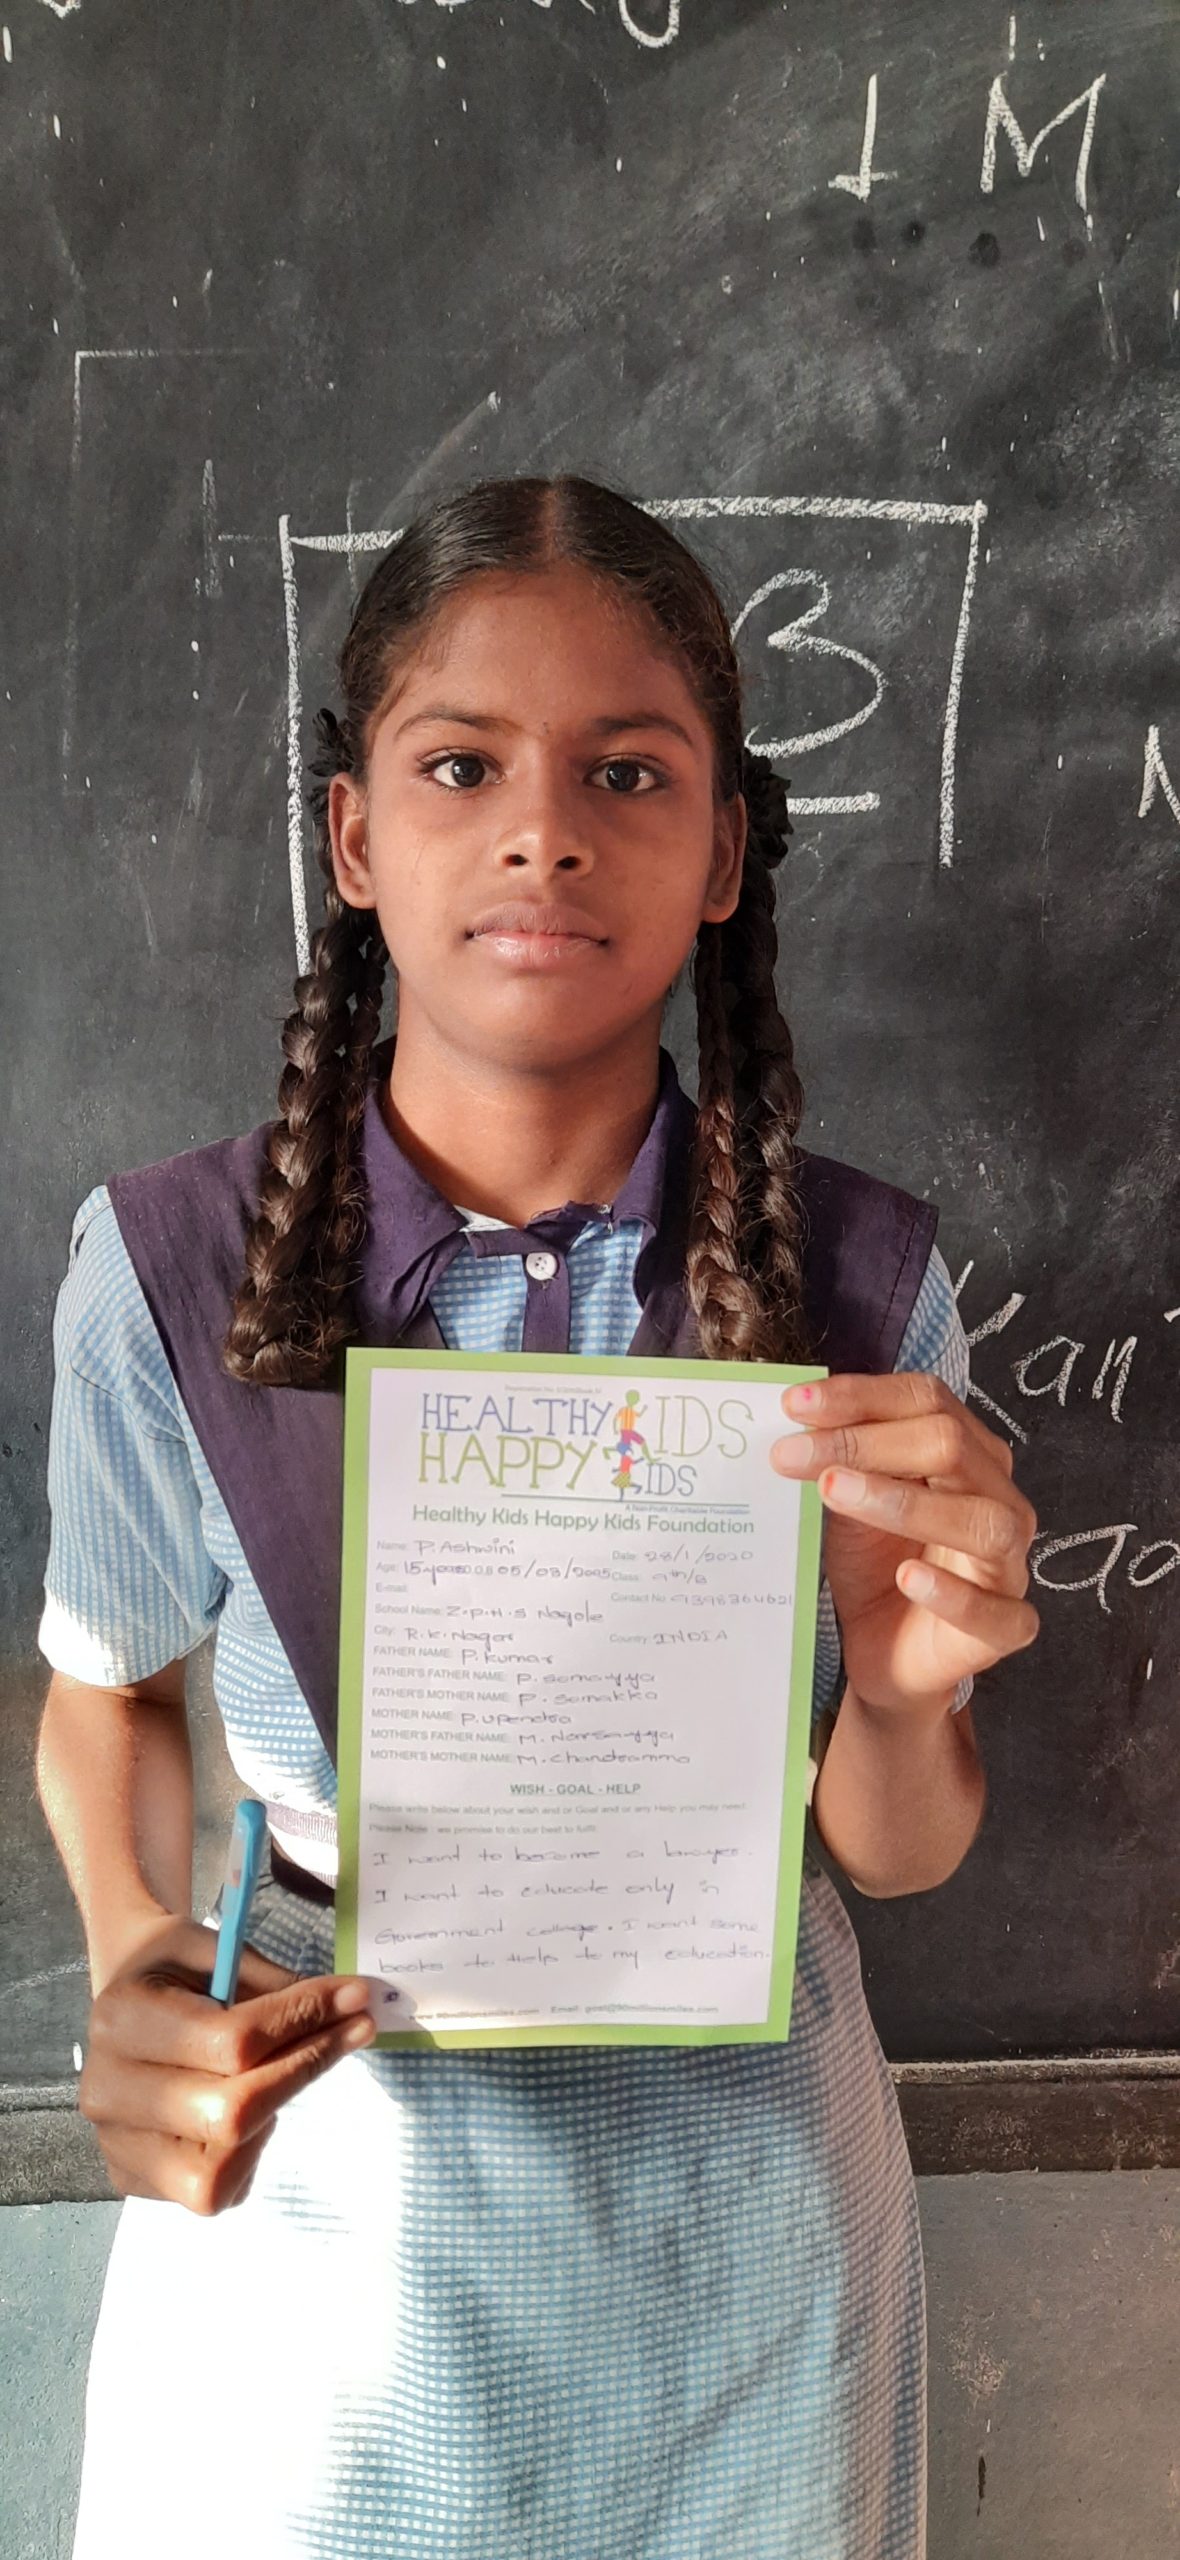 I M
B
Kan
HEALTHY KIDS
HAPPY KIDS
A Non-Profit Charitable Foundation
Healthy Kids Happy Kids Foundation
Name: P. Ashwini
Date: 28/1/2020
Age: 15 years D.O.B 05/03/2005 Class: 9th/B
E-mail: Contact No: 9398364621
School Name: Z.P.H.S Nagole
City: R.K. Nagar Country: INDIA
FATHER NAME: P. Kumar
FATHER'S FATHER NAME: P. Somayya
FATHER'S MOTHER NAME: P. Somakka
MOTHER NAME: P. Upendra
MOTHER'S FATHER NAME: M. Narsayya
MOTHER'S MOTHER NAME: M. Chandramma
WISH - GOAL - HELP
Please write below about your wish and or Goal and or any Help you may need.
Please Note : we promise to do our best to fulfil.
I want to become a lawyer.
I want to educate only in
Government college. I want some
books to help to my education.
www.90millionsmiles.com Email: goal@90millionsmiles.com